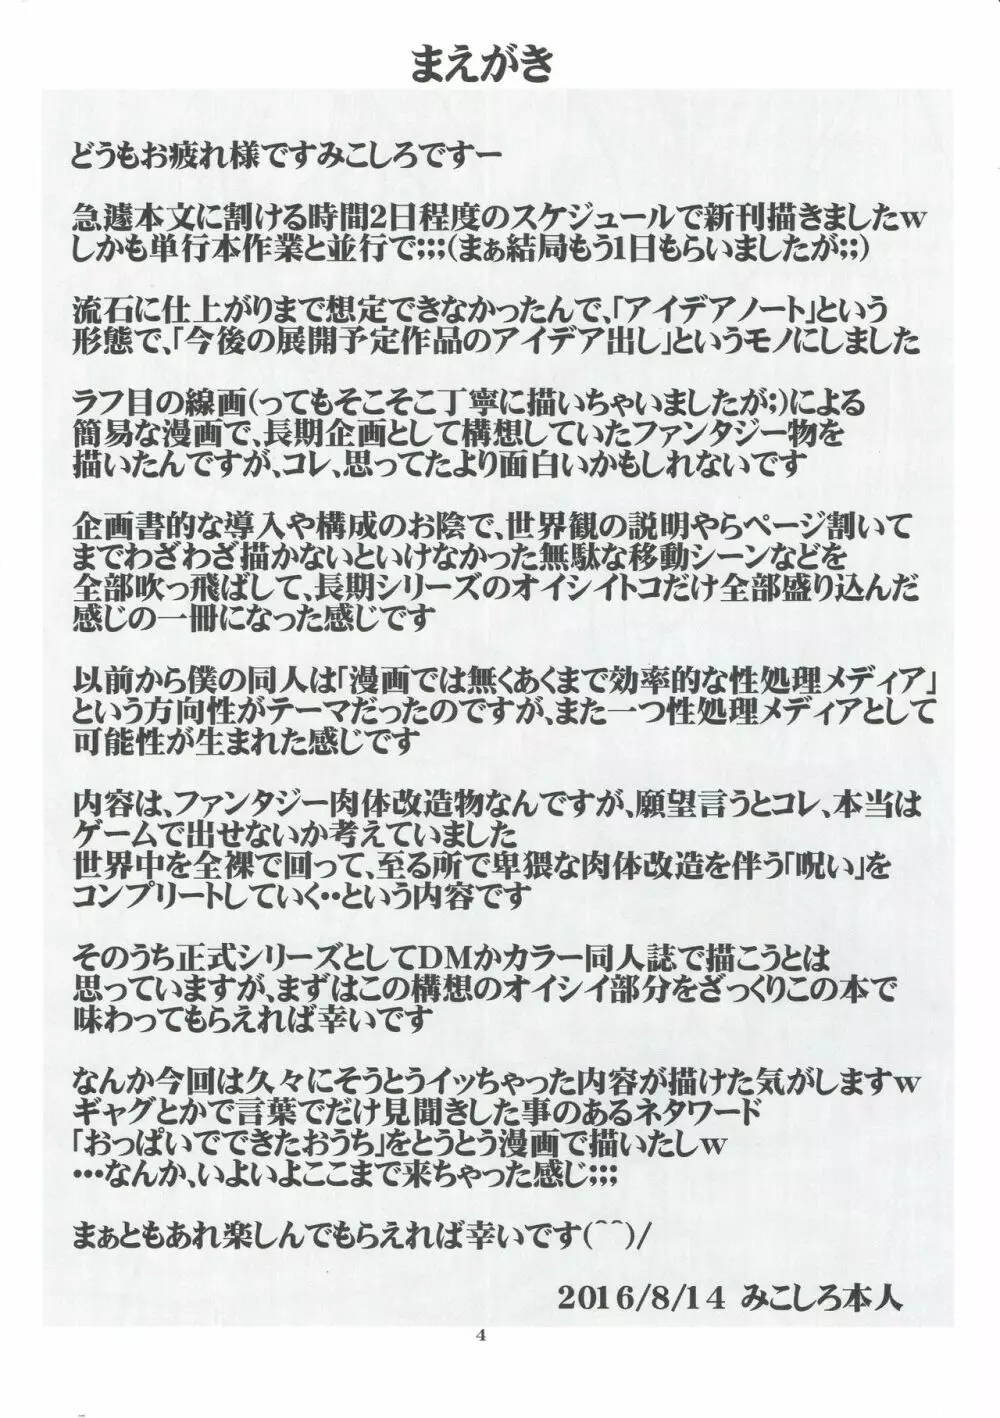 まえがき
どうもお疲れ様ですみこしろですー
急遽本文に割ける時間2日程度のスケジュールで新刊描きましたｗ
しかも単行本作業と並行で;;;(まぁ結局もう1日もらいましたが;;)
流石に仕上がりまで想定できなかったんで、「アイデアノート」という
形態で、「今後の展開予定作品のアイデア出し」というモノにしました
ラフ目の線画(ってもそこそこ丁寧に描いちゃいましたが;)による
簡易な漫画で、長期企画として構想していたファンタジー物を
描いたんですが、コレ、思ってたより面白いかもしれないです
企画書的な導入や構成のお陰で、世界観の説明やらページ割いて
までわざわざ描かないといけなかった無駄な移動シーンなどを
全部吹っ飛ばして、長期シリーズのオイシイトコだけ全部盛り込んだ
感じの一冊になった感じです
以前から僕の同人は「漫画では無くあくまで効率的な性処理メディア」
という方向性がテーマだったのですが、また一つ性処理メディアとして
可能性が生まれた感じです
内容は、ファンタジー肉体改造物なんですが、願望言うとコレ、本当は
ゲームで出せないか考えていました
世界中を全裸で回って、至る所で卑猥な肉体改造を伴う「呪い」を
コンプリートしていく‥という内容です
そのうち正式シリーズとしてDMかカラー同人誌で描こうとは
思っていますが、まずはこの構想のオイシイ部分をざっくりこの本で
味わってもらえれば幸いです
なんか今回は久々にそうとうイッちゃった内容が描けた気がしますｗ
ギャグとかで言葉でだけ見聞きした事のあるネタワード
「おっぱいでできたおうち」をとうとう漫画で描いたしｗ
…なんか、いよいよここまで来ちゃった感じ;;;
まぁともあれ楽しんでもらえれば幸いです(⌒⌒)/
2016/8/14 みこしろ本人
4